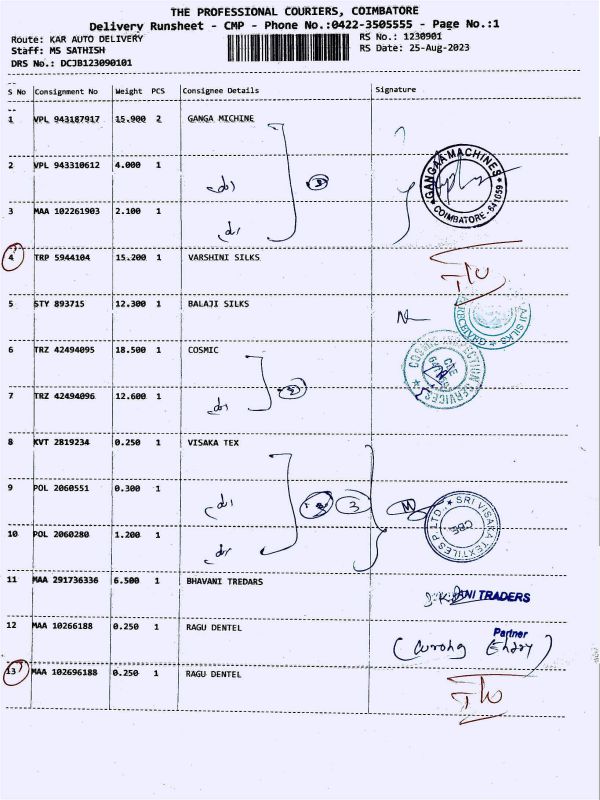 THE PROFESSIONAL COURIERS, COIMBATORE
Delivery Runsheet - CMP - Phone No.:0422-3505555 - Page No.:1
Route: KAR AUTO DELIVERY RS No.: 1230901
Staff: MS SATHISH RS Date: 25-Aug-2023
DRS No.: DCJB123090101
S No Consignment No Weight PCS Consignee Details Signature
1 VPL 943187917 15.900 2 GANGA MICHINE
2 VPL 943310612 4.000 1 do) 3
GANGAA MACHINES COIMBATORE-641059
3 MAA 102261903 2.100 1 do)
4 TRP 5944104 15.200 1 VARSHINI SILKS
5 STY 893715 12.300 1 BALAJI SILKS
AJI SILKS
6 TRZ 42494095 18.500 1 COSMIC
COSMIC SERVICES CBE
7 TRZ 42494096 12.600 1 do) 2
8 KVT 2819234 0.250 1 VISAKA TEX
9 POL 2060551 0.300 1 do) 3
SRI VISAKA TEXTILES P LTD., CBE
10 POL 2060280 1.200 1 do)
11 MAA 291736336 6.500 1 BHAVANI TREDARS
ANI TRADERS
Partner
12 MAA 10266188 0.250 1 RAGU DENTEL
(Wrong Entry)
13 MAA 102696188 0.250 1 RAGU DENTEL